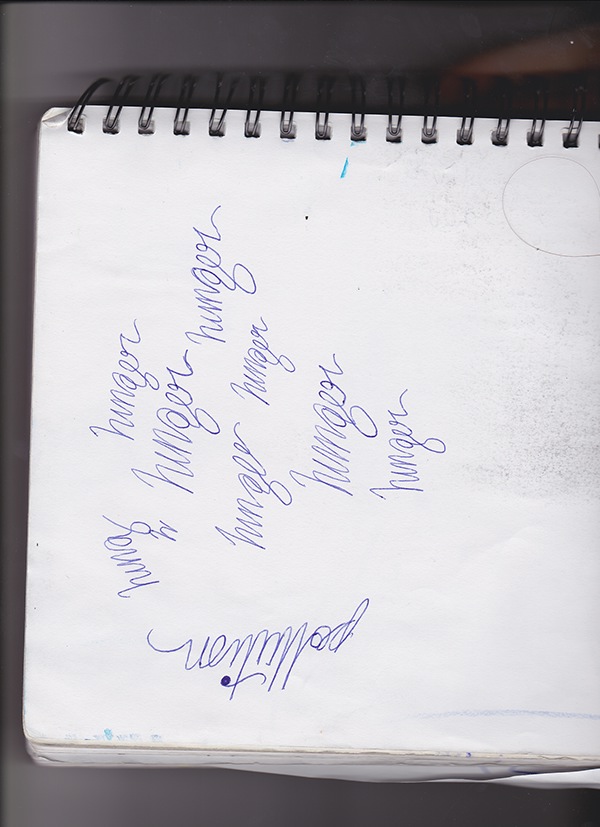 hung hunger
h hunger hunger
hunger hunger
hunger
hunger
pollution